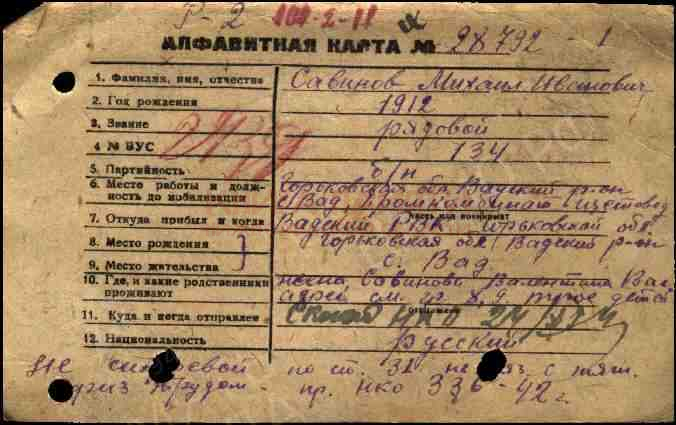 Р-2 101-2-11
АЛФАВИТНАЯ КАРТА № 28792 - 1
1. Фамилия, имя, отчество Савинов Михаил Иванович
2. Год рождения 1912
3. Звание рядовой
4 № ВУС 134
5. Партийность б/п
6. Место работы и должность до мобилизации Горьковская обл. Вадский р-он
с. Вад, Промкомбинат
7. Откуда прибыл и когда Вадский РВК Горьковской обл.
8. Место рождения Горьковская обл. Вадский р-он
9. Место жительства с. Вад
10. Где, и какие родственники проживают жена, Савинова Валентина Вас.
адрес см. п. 8, 9.
11. Куда и когда отправлен НКО
12. Национальность Русский
Не строевой по ст. 31 с тяж.
физ трудом. пр. НКО 336-42 г.